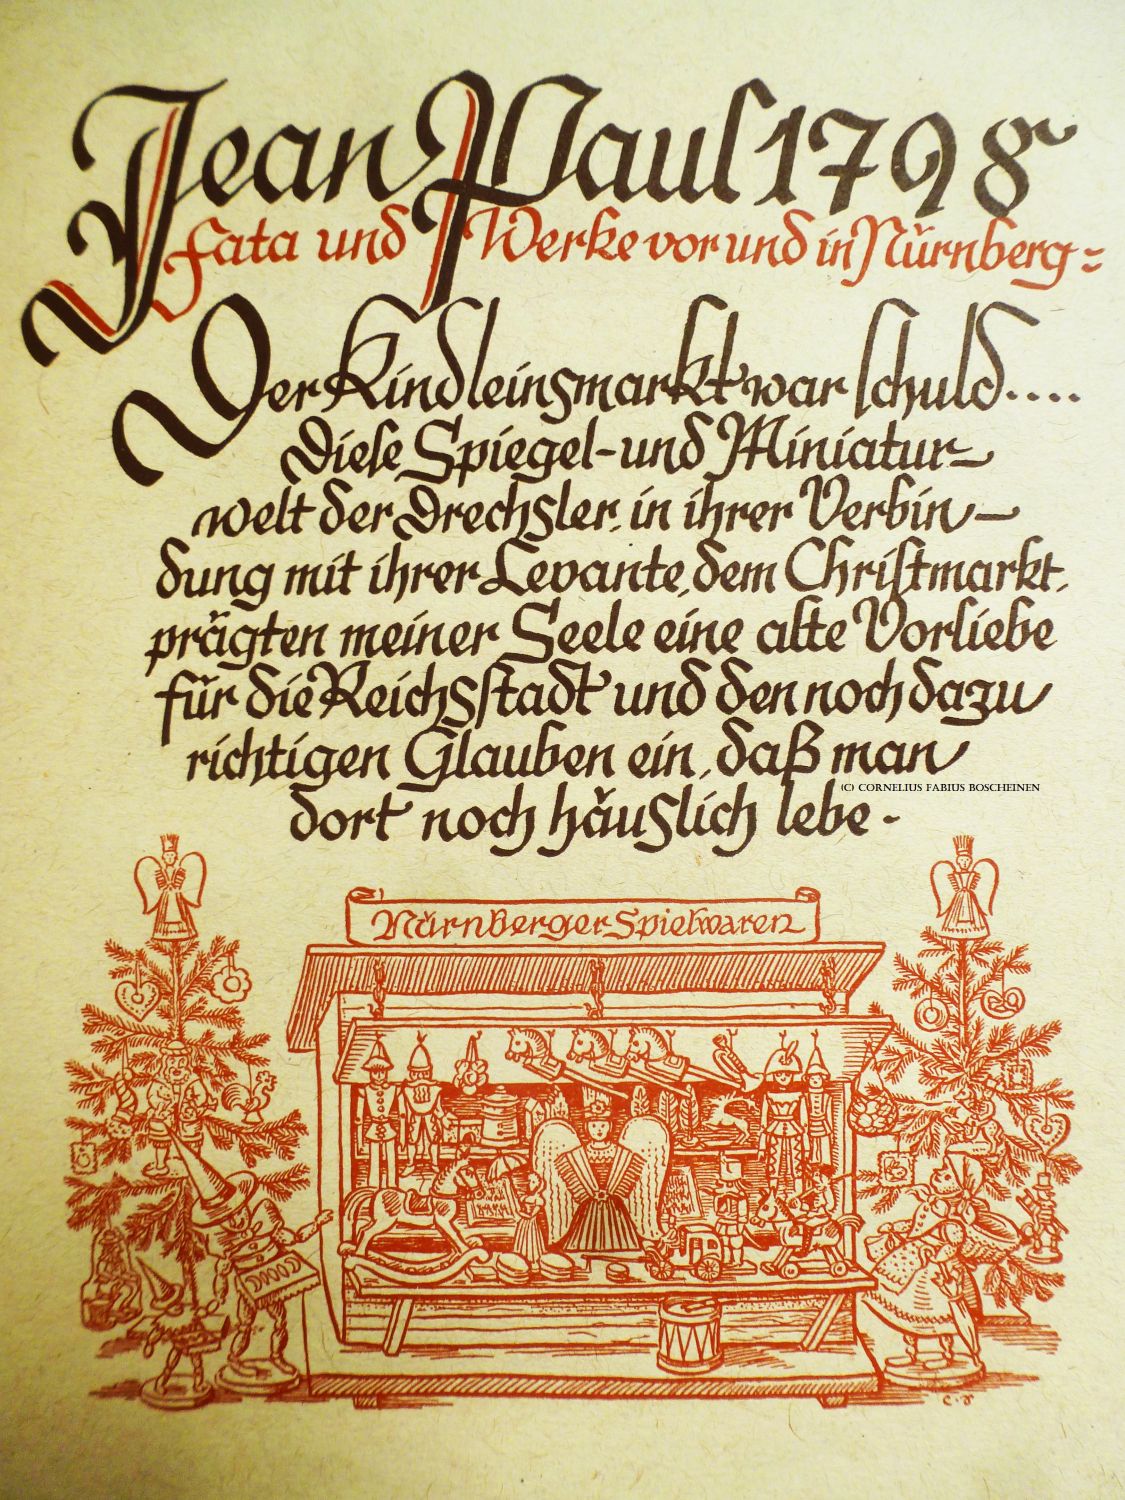 Jean Paul 1798
Fata und Werke vor und in Nürnberg=
Der Kindleinsmarkt war schuld....
Diese Spiegel- und Miniatur-
welt der Drechsler, in ihrer Verbin-
dung mit ihrer Levante, dem Christmarkt,
prägten meiner Seele eine alte Vorliebe
für die Reichsstadt und den noch dazu
richtigen Glauben ein, daß man
dort noch häuslich lebe -
(C) CORNELIUS FABIUS BOSCHEINEN
Nürnberger Spielwaren